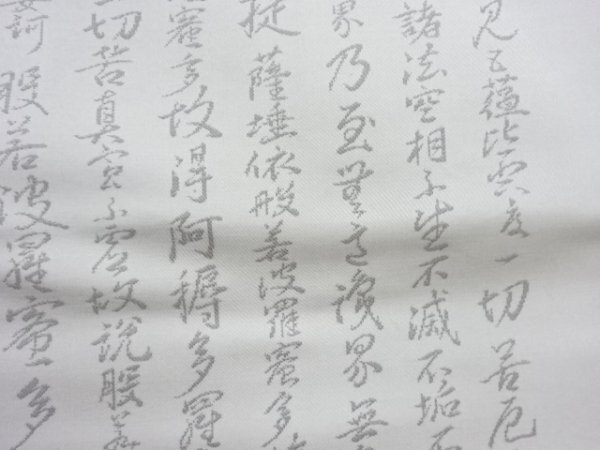 見五蘊皆空度一切苦厄
諸法空相不生不滅不垢不
界乃至無意識界無
提薩埵依般若波羅蜜多故
蜜多故得阿耨多羅
一切苦真實不虛故說般若
訶般若波羅蜜多